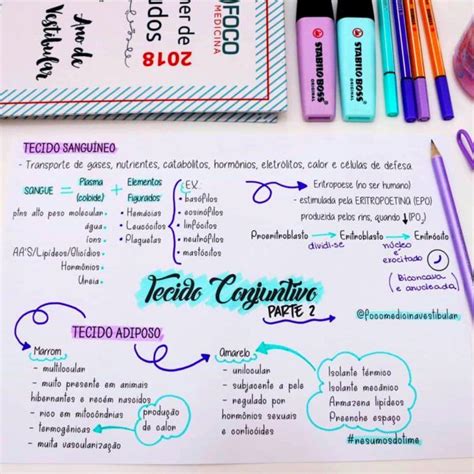 FOCO
MEDICINA
ner de
udos
2018
Ano de
Vestibular
STABILO BOSS
ORIGINAL
STABILO BOSS
ORIGINAL
TECIDO SANGUÍNEO
- Transporte de gases, nutrientes, catabólitos, hormônios, eletrólitos, calor e células de defesa
SANGUE = Plasma (coloide) + Elementos Figurados
ptns alto peso molecular
água
íons
AA'S/Lipídeos/Glicídios
Hormônios
Ureia
• Hemácias
• Leucócitos
• Plaquetas
EX.
• basófilos
• eosinófilos
• linfócitos
• neutrófilos
• mastócitos
Eritropoese (no ser humano)
- estimulada pela ERITROPOETINA (EPO)
produzida pelos rins, quando ↓(PO₂)
Proeritroblasto → Eritroblasto → Eritrócito
dividi-se
núcleo
é
exocitado
(Biconcava
e anucleada)
Tecido Conjuntivo
PARTE 2
@focomedicinavestibular
TECIDO ADIPOSO
Marrom
- multilocular
- muito presente em animais
hibernantes e recém nascidos
- rico em mitocôndrias
- termogênicas
- muita vascularização
produção
de calor
Amarelo
- unilocular
- subjacente a pele
- regulado por
hormônios sexuais
e corticóides
Isolante térmico
Isolante mecânico
Armazena lipídeos
Preenche espaço
#resumosdotime